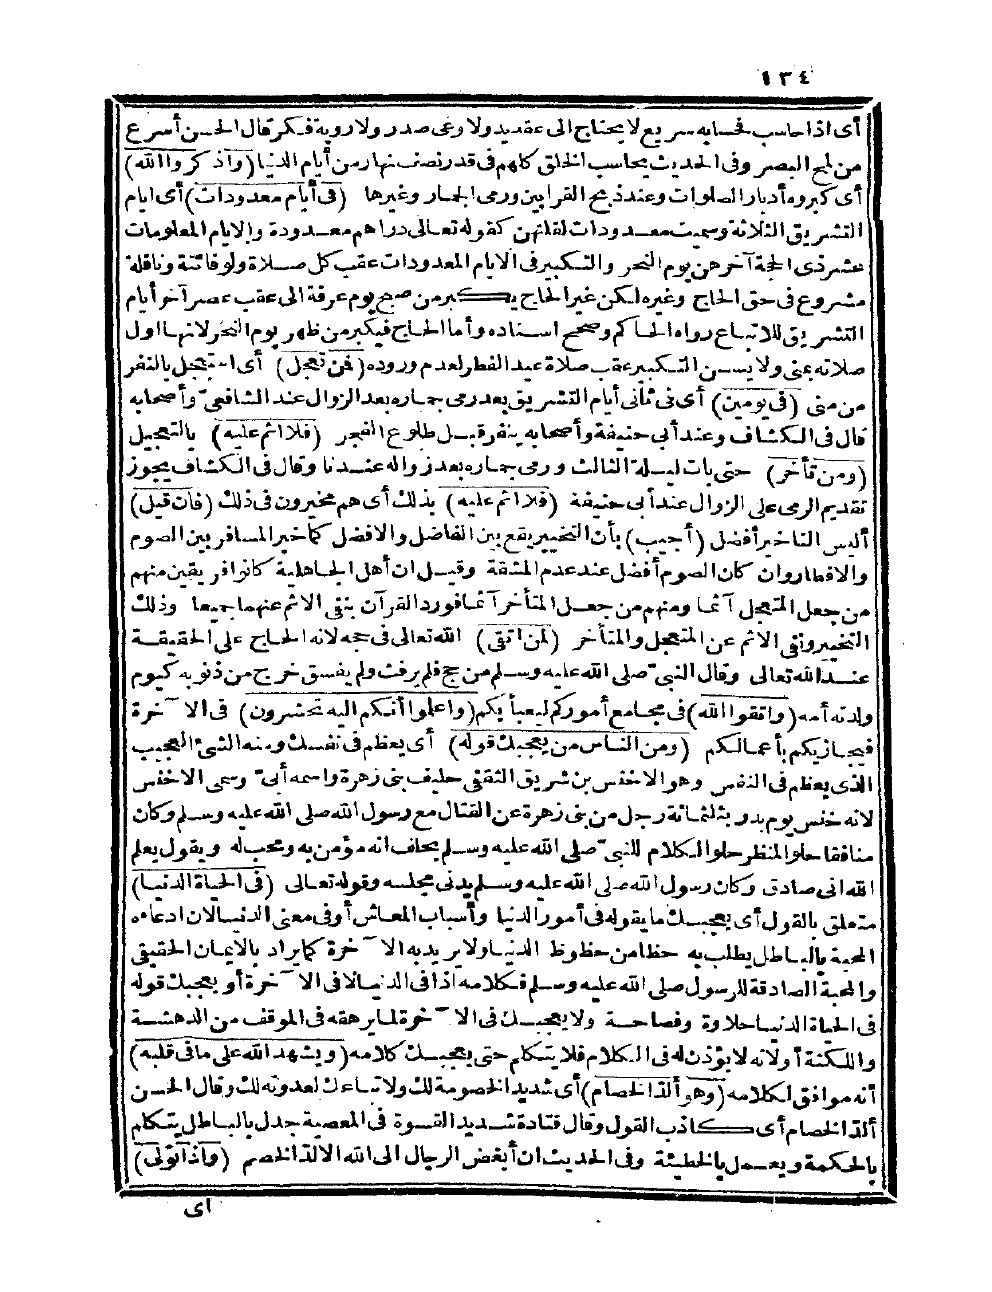 ١٣٤
أى اذا حاسب فحسابه سريع لا يحتاج الى عقد يد ولا وعى صدر ولا روية فكر قال الحسن أسرع
من لمح البصر وفى الحديث يحاسب الخلق كلهم فى قدر نصف نهار من أيام الدنيا (واذكروا الله)
أى كبروه أدبار الصلوات وعند ذبح القرابين ورمى الجمار وغيرها (فى أيام معدودات) أى ايام
التشريق الثلاثة وسميت معدودات لقلتهن كقوله تعالى دراهم معدودة والايام المعلومات
عشر ذى الحجة آخرهن يوم النحر والتكبير فى الايام المعدودات عقب كل صلاة ولو فائتة ونافلة
مشروع فى حق الحاج وغيره لكن غير الحاج يكبر من صبح يوم عرفة الى عقب عصر آخر أيام
التشريق للاتباع رواه الحاكم وصحح اسناده وأما الحاج فيكبر من ظهر يوم النحر لانها اول
صلاته بمنى ولا يسن التكبير عقب صلاة عيد الفطر لعدم وروده (فمن تعجل) أى استعجل بالنفر
من منى (فى يومين) أى فى ثانى أيام التشريق بعد رمى جماره بعد الزوال عند الشافعىّ وأصحابه
قال فى الكشاف وعند أبى حنيفة وأصحابه ينفر قبل طلوع الفجر (فلا اثم عليه) بالتعجيل
(ومن تأخر) حتى بات ليلة الثالث ورمى جماره بعد زواله عندنا وقال فى الكشاف يجوز
تقديم الرمى على الزوال عند أبى حنيفة (فلا اثم عليه) بذلك أى هم مخيرون فى ذلك (فان قيل)
أليس التاخير أفضل (أجيب) بأن التخيير يقع بين الفاضل والافضل كما خير المسافر بين الصوم
والافطار وان كان الصوم أفضل عند عدم المشقة وقيل ان أهل الجاهلية كانوا فريقين منهم
من جعل المتعجل آثما ومنهم من جعل المتأخر آثما فورد القرآن بنفى الاثم عنهما جميعا وذلك
التخيير ونفى الاثم عن المتعجل والمتأخر (لمن اتقى) الله تعالى فى حجه لانه الحاج على الحقيقة
عند الله تعالى وقال النبىّ صلى الله عليه وسلم من حج فلم يرفث ولم يفسق خرج من ذنوبه كيوم
ولدته أمه (واتقوا الله) فى مجامع أموركم ليعبأ بكم (واعلموا أنكم اليه تحشرون) فى الآخرة
فيجازيكم بأعمالكم (ومن الناس من يعجبك قوله) أى يعظم فى نفسك ومنه الشئ العجيب
الذى يعظم فى النفس وهو الاخنس بن شريق الثقفى حليف بنى زهرة واسمه أبىّ وسمى الاخنس
لانه خنس يوم بدر بثلثمائة رجل من بنى زهرة عن القتال مع رسول الله صلى الله عليه وسلم وكان
منافقا حلو المنظر حلو الكلام للنبىّ صلى الله عليه وسلم يحلف انه مؤمن به ومحب له ويقول يعلم
الله انى صادق وكان رسول الله صلى الله عليه وسلم يدنى مجلسه وقوله تعالى (فى الحياة الدنيا)
متعلق بالقول أى يعجبك ما يقوله فى أمور الدنيا وأسباب المعاش أو فى معنى الدنيا لان ادعاءه
المحبة بالباطل يطلب به حظا من حظوظ الدنيا ولا يريد به الآخرة كما يراد بالايمان الحقيقى
والمحبة الصادقة للرسول صلى الله عليه وسلم فكلامه اذا فى الدنيا لا فى الآخرة أو يعجبك قوله
فى الحياة الدنيا حلاوة وفصاحة ولا يعجبك فى الآخرة لما يرهقه فى الموقف من الدهشة
واللكنة أو لانه لا يؤذن له فى الكلام فلا يتكلم حتى يعجبك كلامه (ويشهد الله على ما فى قلبه)
أنه موافق لكلامه (وهو ألدّ الخصام) أى شديد الخصومة لك ولاتباعك لعدوته لك وقال الحسن
ألدّ الخصام أى كاذب القول وقال قتادة شديد القسوة فى المعصية جدل بالباطل يتكلم
بالحكمة ويعمل بالخطيئة وفى الحديث ان أبغض الرجال الى الله الالدّ الخصم (واذا تولى)
أى